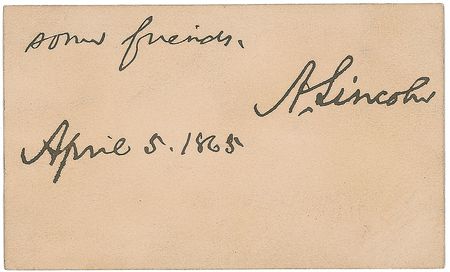 some friends.
A. Lincoln
April 5. 1865